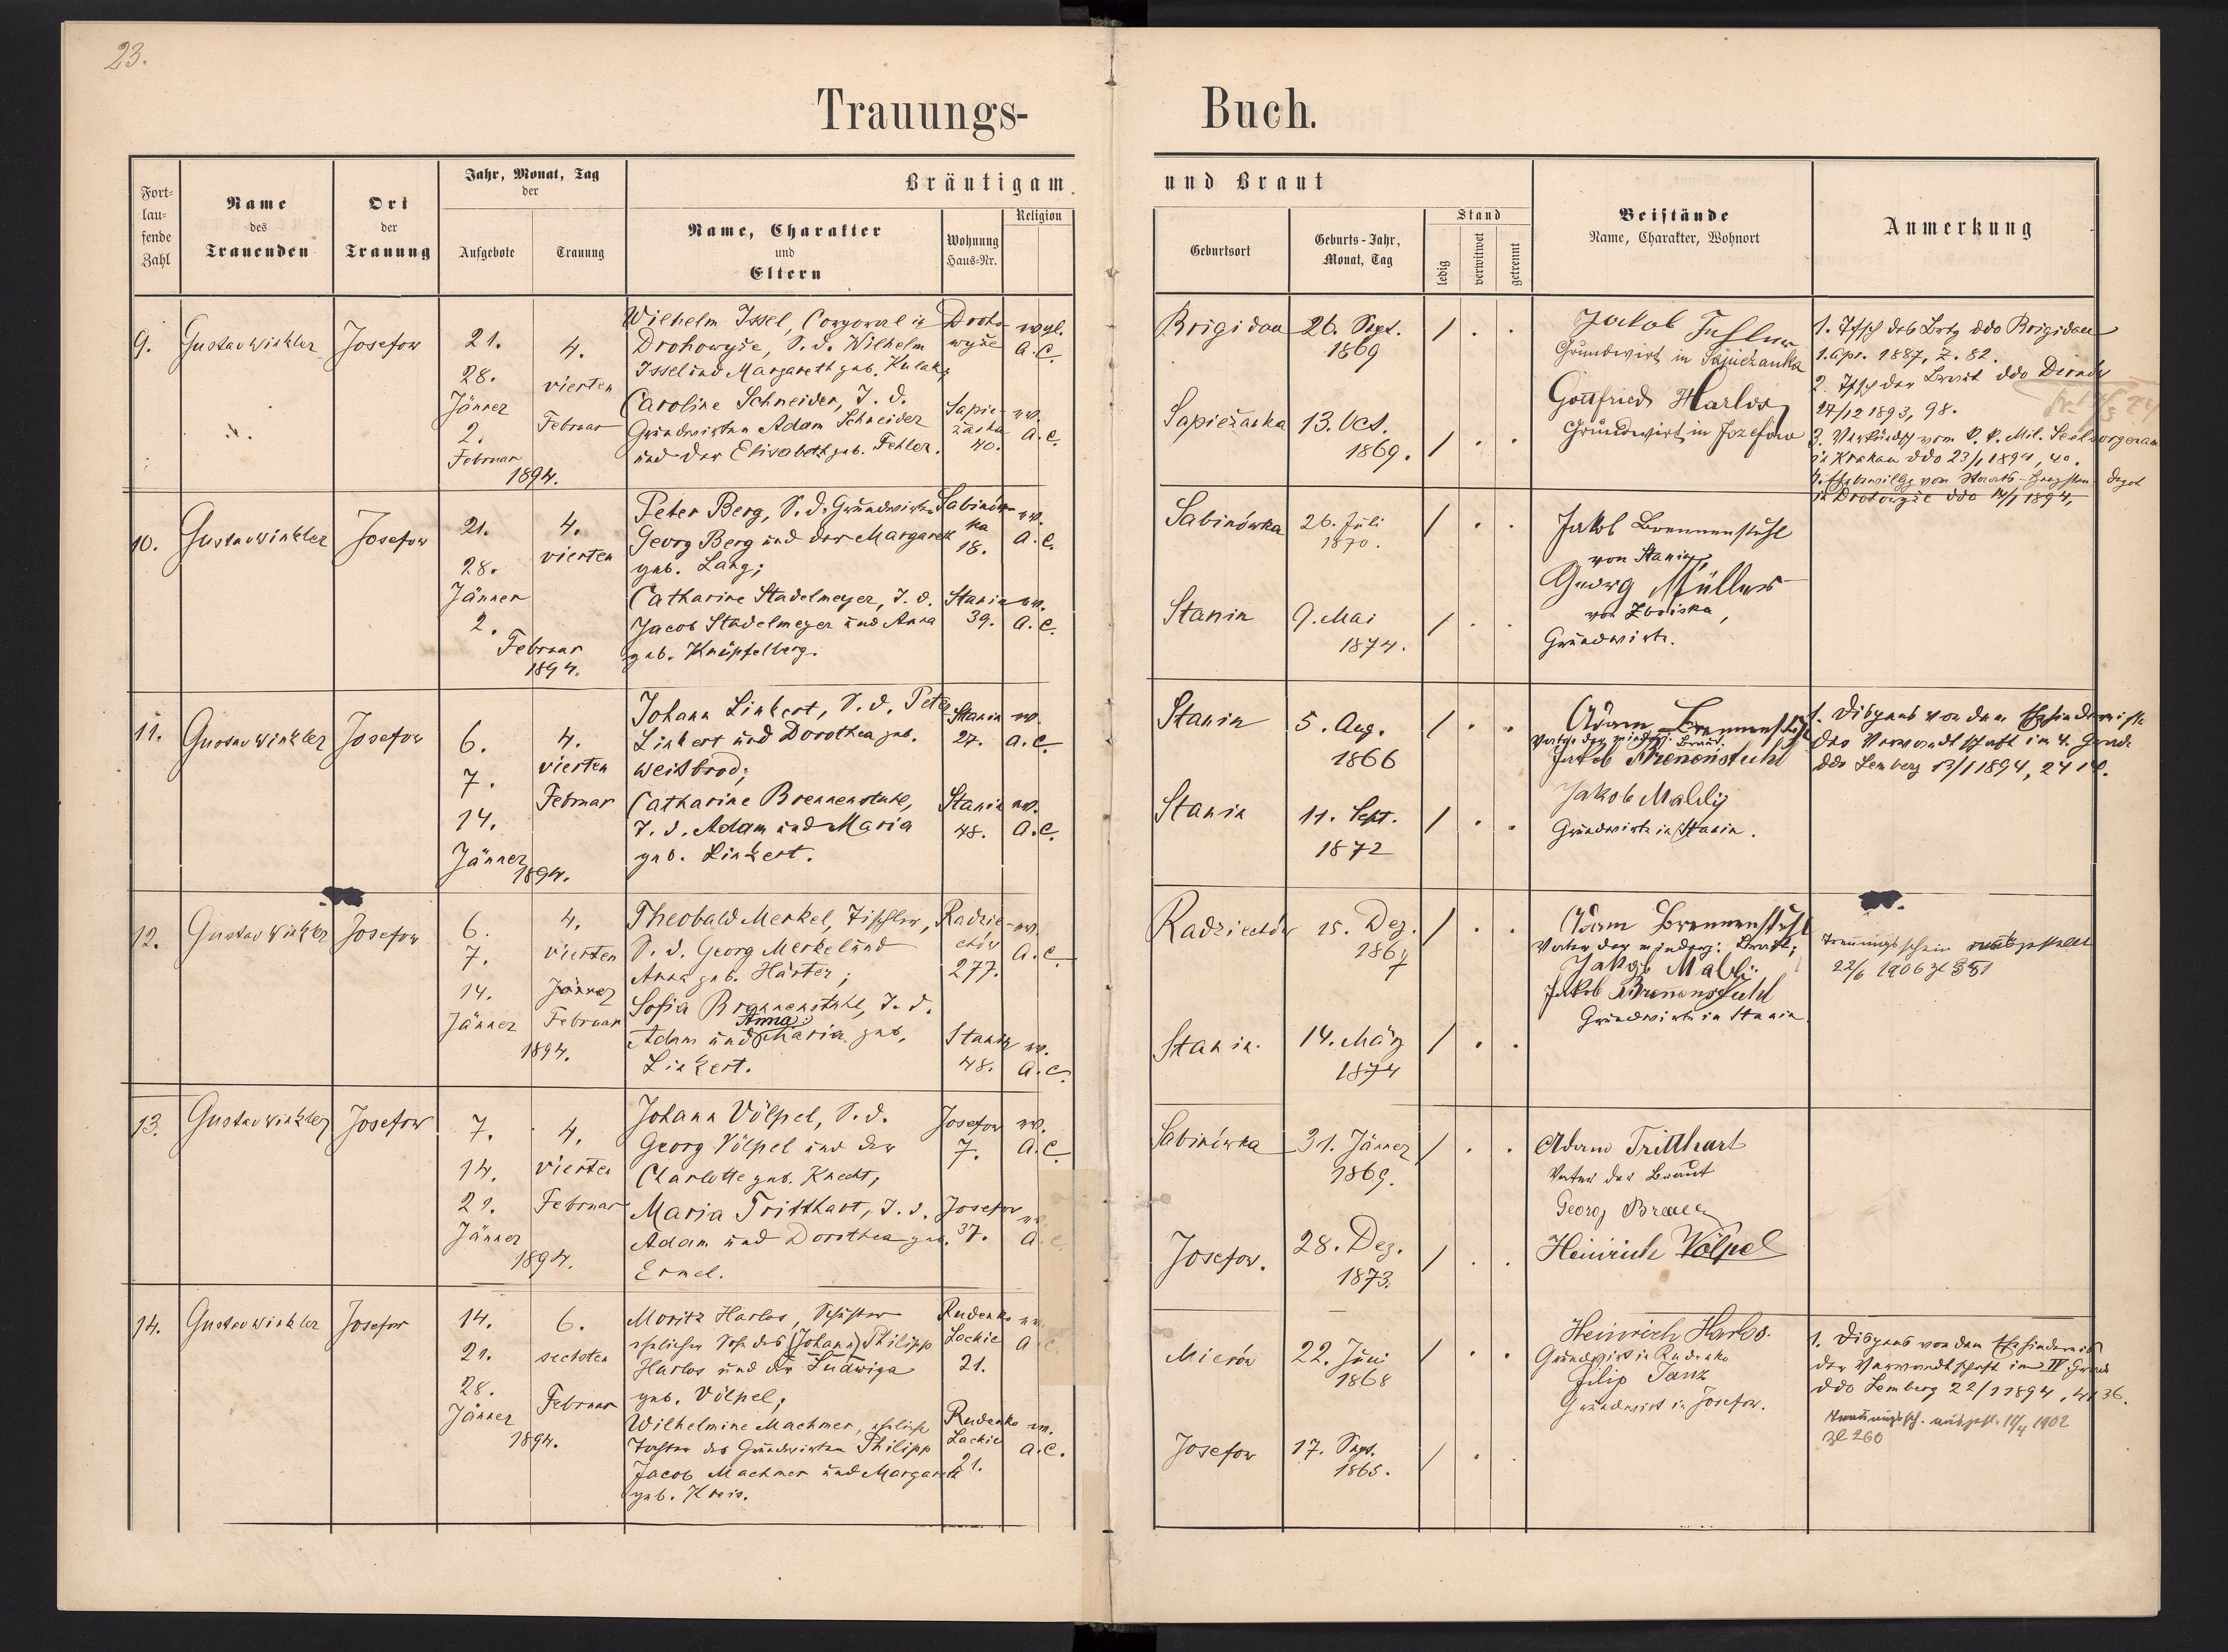 23.
Trauungs-
Buch.
Fort-
lau-
fende
Zahl
Name
des
Trauenden
Ort
der
Trauung
Jahr, Monat, Tag
der
Aufgebote
Trauung
Bräutigam
Name, Charakter
und
Eltern
Wohnung
Haus-Nr.
Religion
und Braut
Geburtsort
Geburts-Jahr,
Monat, Tag
Stand
ledig
verwitwet
getrennt
Beistände
Name, Charakter, Wohnort
Anmerkung
9.
Gustav Winkler
Josefow
21.
28.
Jänner
2.
Februar
1894.
4.
vierten
Februar
Wilhelm Issel, Corporal in
Drohowyże, S. d. Wilhelm
Issel und Margareth geb. Kulak;
Caroline Schneider, T. d.
Grundwirten Adam Schneider
und der Elisabeth geb. Fehler.
Droho-
wyże
evgl.
A. C.
Sapie-
żanka
40.
ev.
A. C.
Brigidau
26. Sept.
1869
Sapieżanka
13. Oct.
1869.
Jakob
Grundwirt in Sapieżanka
Gottfried Harlos
Grundwirt in Josefow
1. Tfsch des Brtg ddo Brigidau
1. Apr. 1887, Z. 82.
2. Tfsch der Braut ddo
27/12 1893, 98.
3. Verkündsch vom k. k. Mil. Seelsorgeram
in Krakau ddo 23/1 1894, 40.
depot
in Drohowyże ddo 14/1 1894,
10.
Gustav Winkler
Josefow
21.
28.
Jänner
2.
Februar
1894.
4.
vierten
Peter Berg, S. d. Grundwirten
Georg Berg und der Margareth
geb. Lang;
Catharine Stadelmeyer, T. d.
Jacob Stadelmeyer und Anna
geb. Knüpfelberg.
Sabinów-
ka
18.
ev.
A. C.
Stanin
39.
ev.
A. C.
Sabinówka
26. Juli
1870.
Stanin
9. Mai
1874.
Jakob Brennenstuhl
von Stanin,
Georg Müller
von Zboiska,
Grundwirte.
11.
Gustav Winkler
Josefow
6.
7.
14.
Jänner
1894.
4.
vierten
Februar
Johann Linkert, S. d. Peter
Linkert und Dorothea geb.
Weisbrod;
Catharine Brennenstuhl,
T. d. Adam und Maria
geb. Linkert.
Stanin
27.
ev.
A. C.
Stanin
48.
ev.
A. C.
Stanin
5. Aug.
1866
Stanin
11. Sept.
1872
Adam Brennenstuhl
Vater der minderj. Braut.
Jakob Brenenstuhl
Jakob Mally
Grundwirte in Stanin.
1. Dispens von dem Ehehindernisse
der Verwandtschaft im 4. Grade
ddo Lemberg 13/1 1894, 24
12.
Gustav Winkler
Josefow
6.
7.
14.
Jänner
4.
vierten
Jänner
Februar
1894.
Theobald Merkel, Tischler,
S. d. Georg Merkel und
Anna geb. Harter;
Sofia Brennenstuhl, T. d.
Anna
Adam und (Maria geb.
Linkert.
Radzie-
chów
277.
ev.
A. C.
Stanin
48.
ev.
A. C.
Radziechów
15. Dez.
1867
Stanin.
14. März
1874
Adam Brennenstuhl
Vater der minderj: Braut;
Jakob Mally
Jakob Brunenstuhl
Grundwirte in Stanin
Trauungsschein ausgestellt
22/6 1906 Zl 551
13.
Gustav Winkler
Josefow
7.
14.
21.
Jänner
1894.
4.
vierten
Februar
Johann Völpel, S. d.
Georg Völpel und der
Charlotte geb. Knecht;
Maria Tritthart, T. d.
Adam und Dorothea geb.
Ernel.
Josefow
7.
ev.
A. C.
Josefow
37.
ev.
A. C.
Sabinówka
31. Jänner
1869.
Josefow.
28. Dez.
1873.
Adam Tritthart
Vater der Braut
Georg Brauer
Heinrich Völpel
14.
Gustav Winkler
Josefow
14.
21.
28.
Jänner
1894.
6.
sechsten
Februar
Moritz Harlos, Schuster
ehelicher Sohn des (Johann) Philipp
Harlos und der Ludwiga
geb. Völpel;
Wilhelmine Machmer, eheliche
Tochter des Grundwirten Philipp
Jacob Machmer und Margareth
geb. Kreis.
Rudenko
Lackie
21.
ev.
A. C.
Rudenko
Lackie
21.
ev.
A. C.
Mierów
22. Juni
1868
Josefow
17. Sept.
1865.
Heinrich Harlos.
Grundwirt in Rudenko
Filip Janz
Grundwirt in Josefow.
1. Dispens von dem Ehehindernis
der Verwandtschaft im IV Grade
ddo Lemberg 22/1 1894, 4136.
Trauungssch. ausgest. 19/4 1902
Zl 260